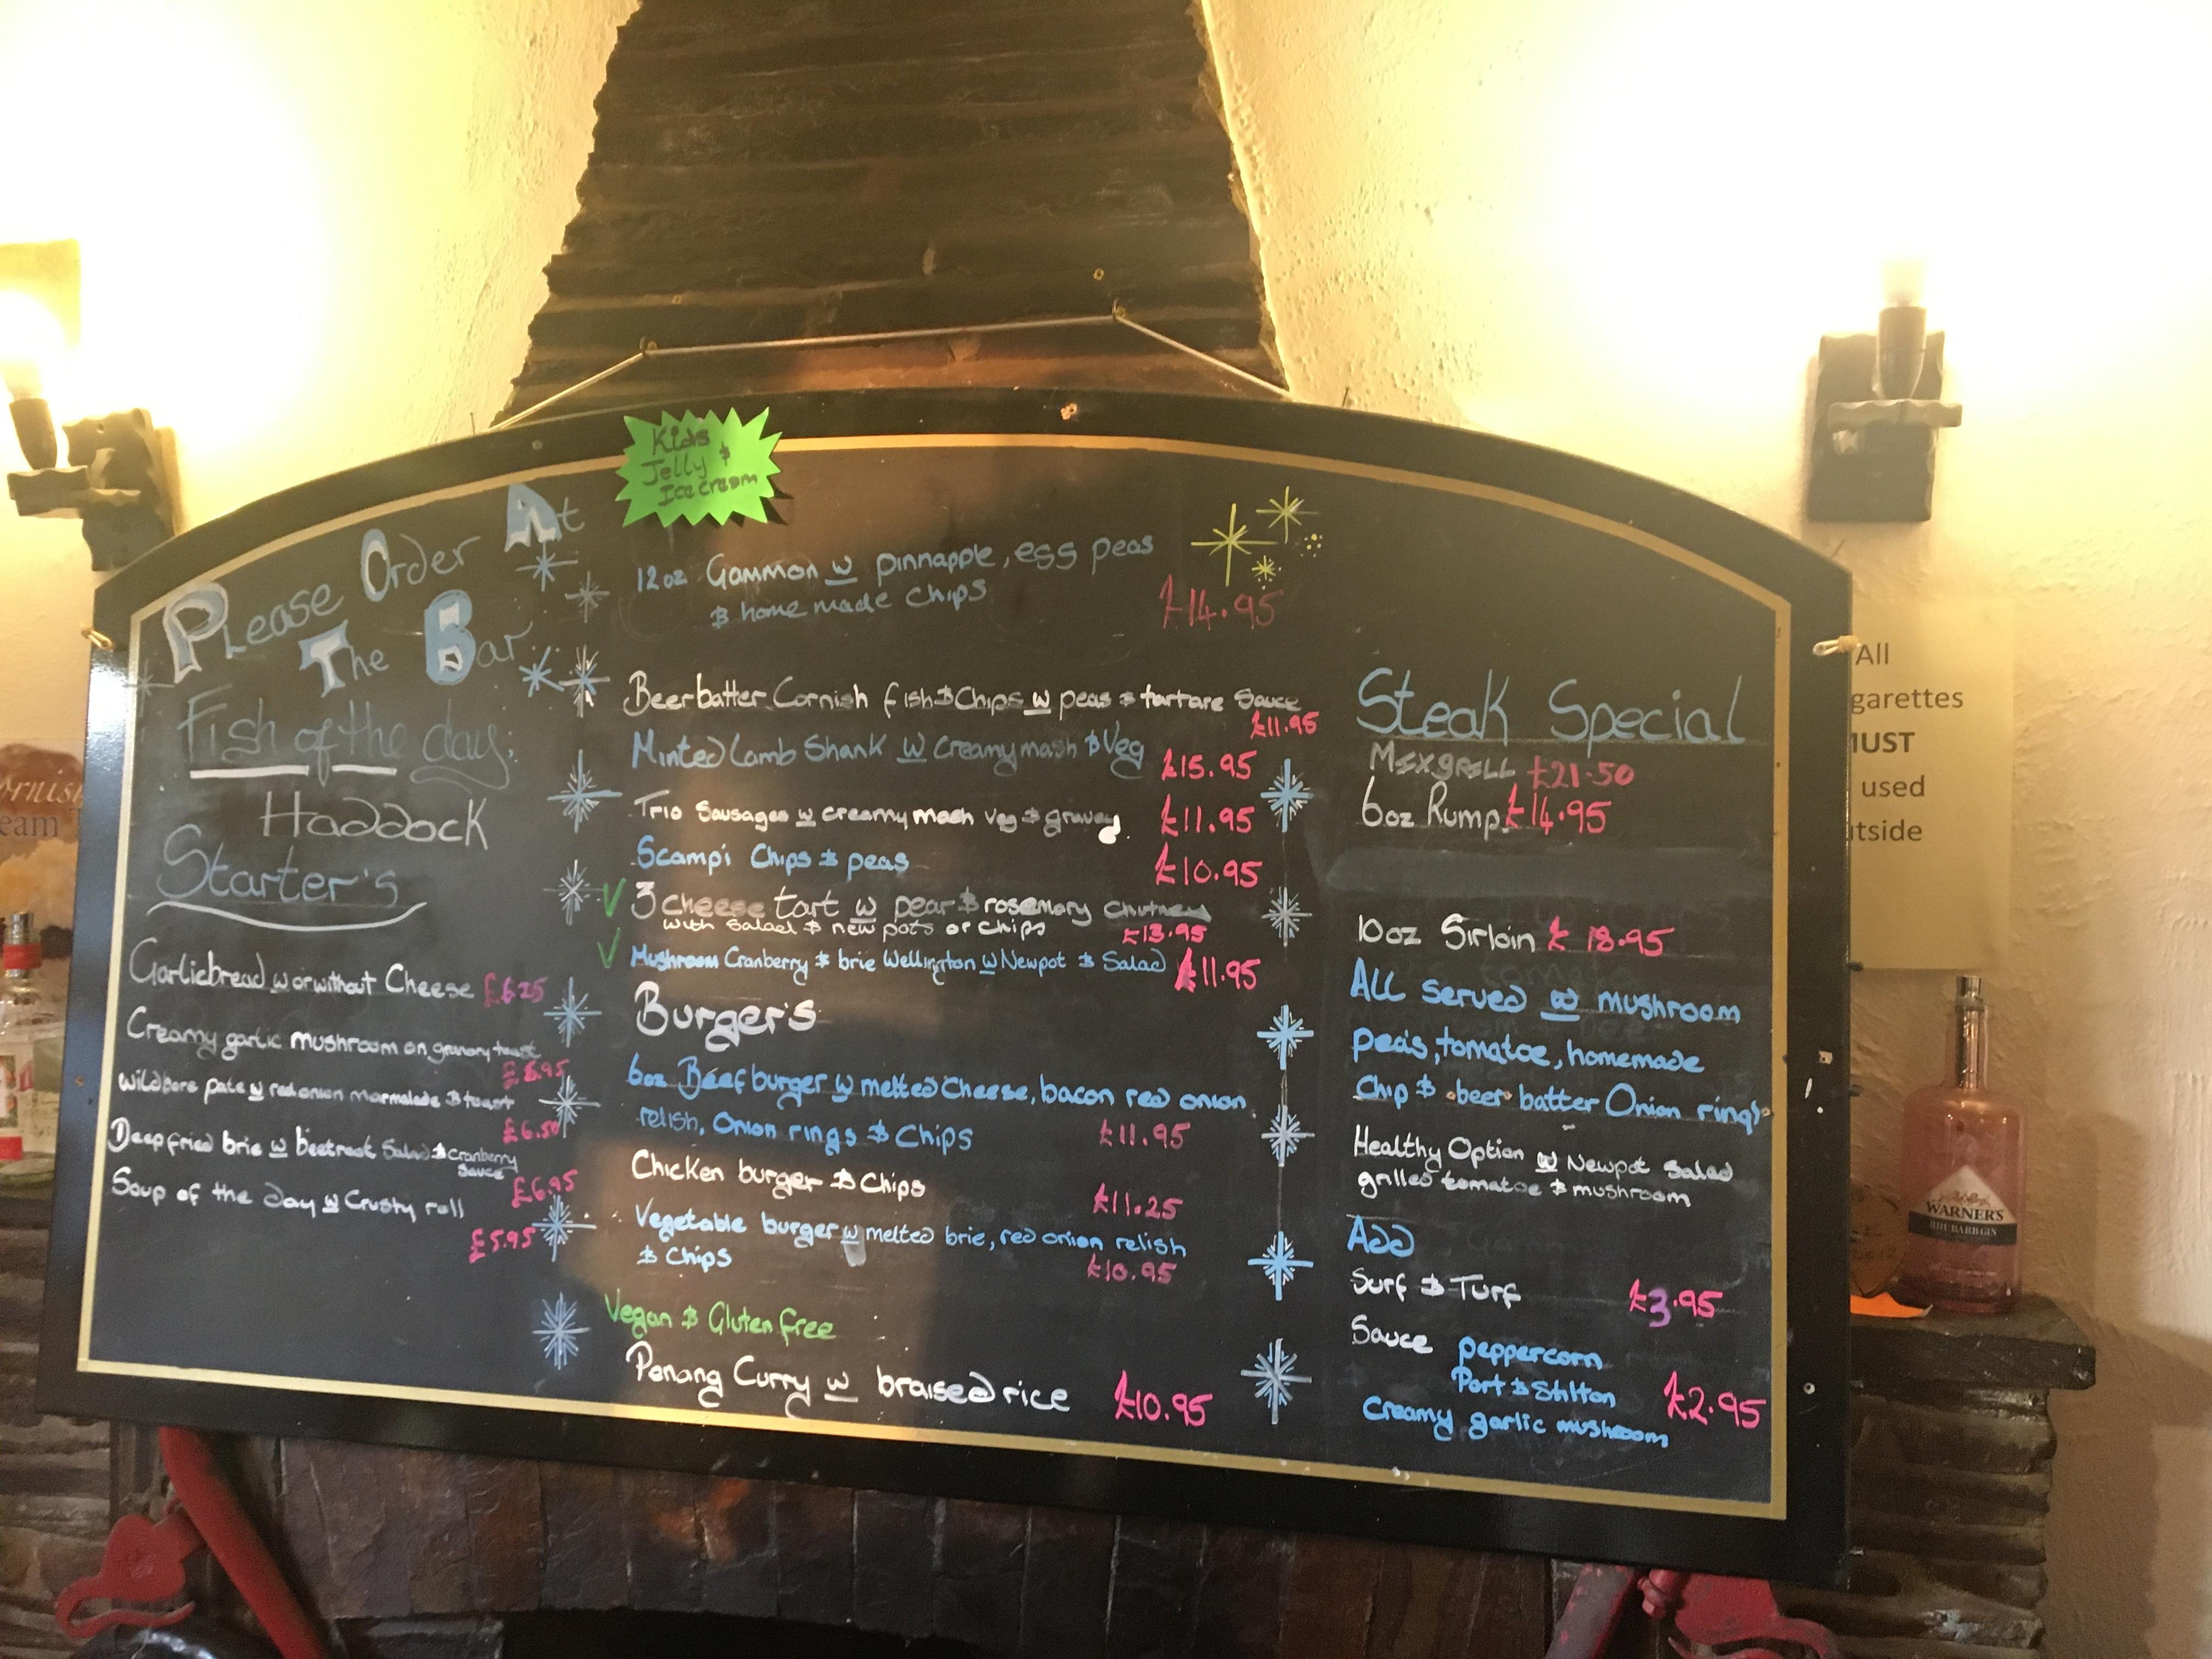 Kids
Jelly &
Ice cream
Please Order At
The Bar
Fish of the day,
Haddock
Starter's
Garlicbread w or without Cheese £6.25
Creamy garlic mushroom on granary toast
£6.95
wildbore pate w red onion marmalade & toast
£6.50
Deepfried brie w beetroot Salad & Cranberry
Sauce
£6.95
Soup of the day w Crusty roll
£5.95
12oz Gammon w pinnapple, egg peas
& home made chips £14.95
Beerbatter Cornish fish & Chips w peas & tartare Sauce
£11.95
Minted Lamb Shank w Creamy mash & Veg
£15.95
Trio Sausages w creamy mash veg & gravey £11.95
Scampi Chips & peas £10.95
✓ 3 cheese tart w pear & rosemary chutney
with salad & new pots or chips £13.95
✓ Mushroom Cranberry & brie Wellington w Newpot & Salad £11.95
Burger's
6oz Beef burger w melted Cheese, bacon red onion
relish, Onion rings & Chips £11.95
Chicken burger & Chips
£11.25
Vegetable burger w melted brie, red onion relish
& Chips £10.95
Vegan & Gluten free
Penang Curry w braised rice £10.95
Steak Special
MixgriLL £21.50
6oz Rump £14.95
10oz Sirloin £18.95
ALL served w mushroom
peas, tomatoe, homemade
Chip & beer batter Onion rings
Healthy Option w Newpot Salad
grilled tomatoe & mushroom
Add
Surf & Turf £3.95
Sauce peppercorn
Port & Stilton £2.95
Creamy garlic mushroom
All
garettes
MUST
used
tside
WARNER'S
RHUBARB GIN